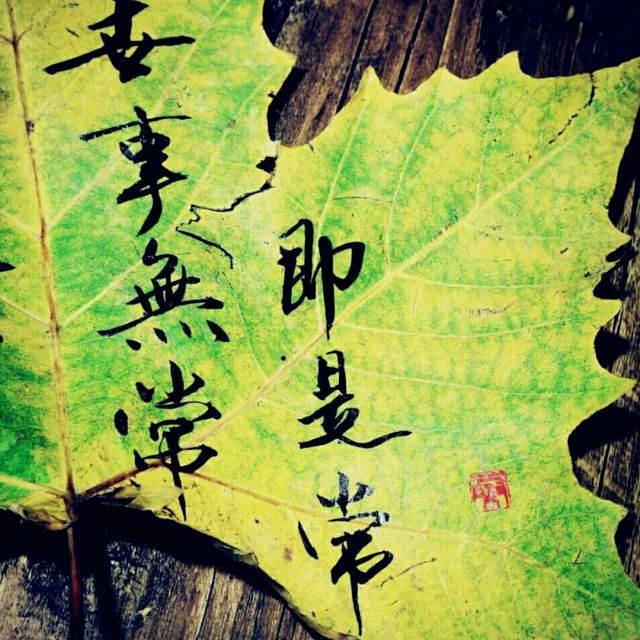 世事無常
即是常